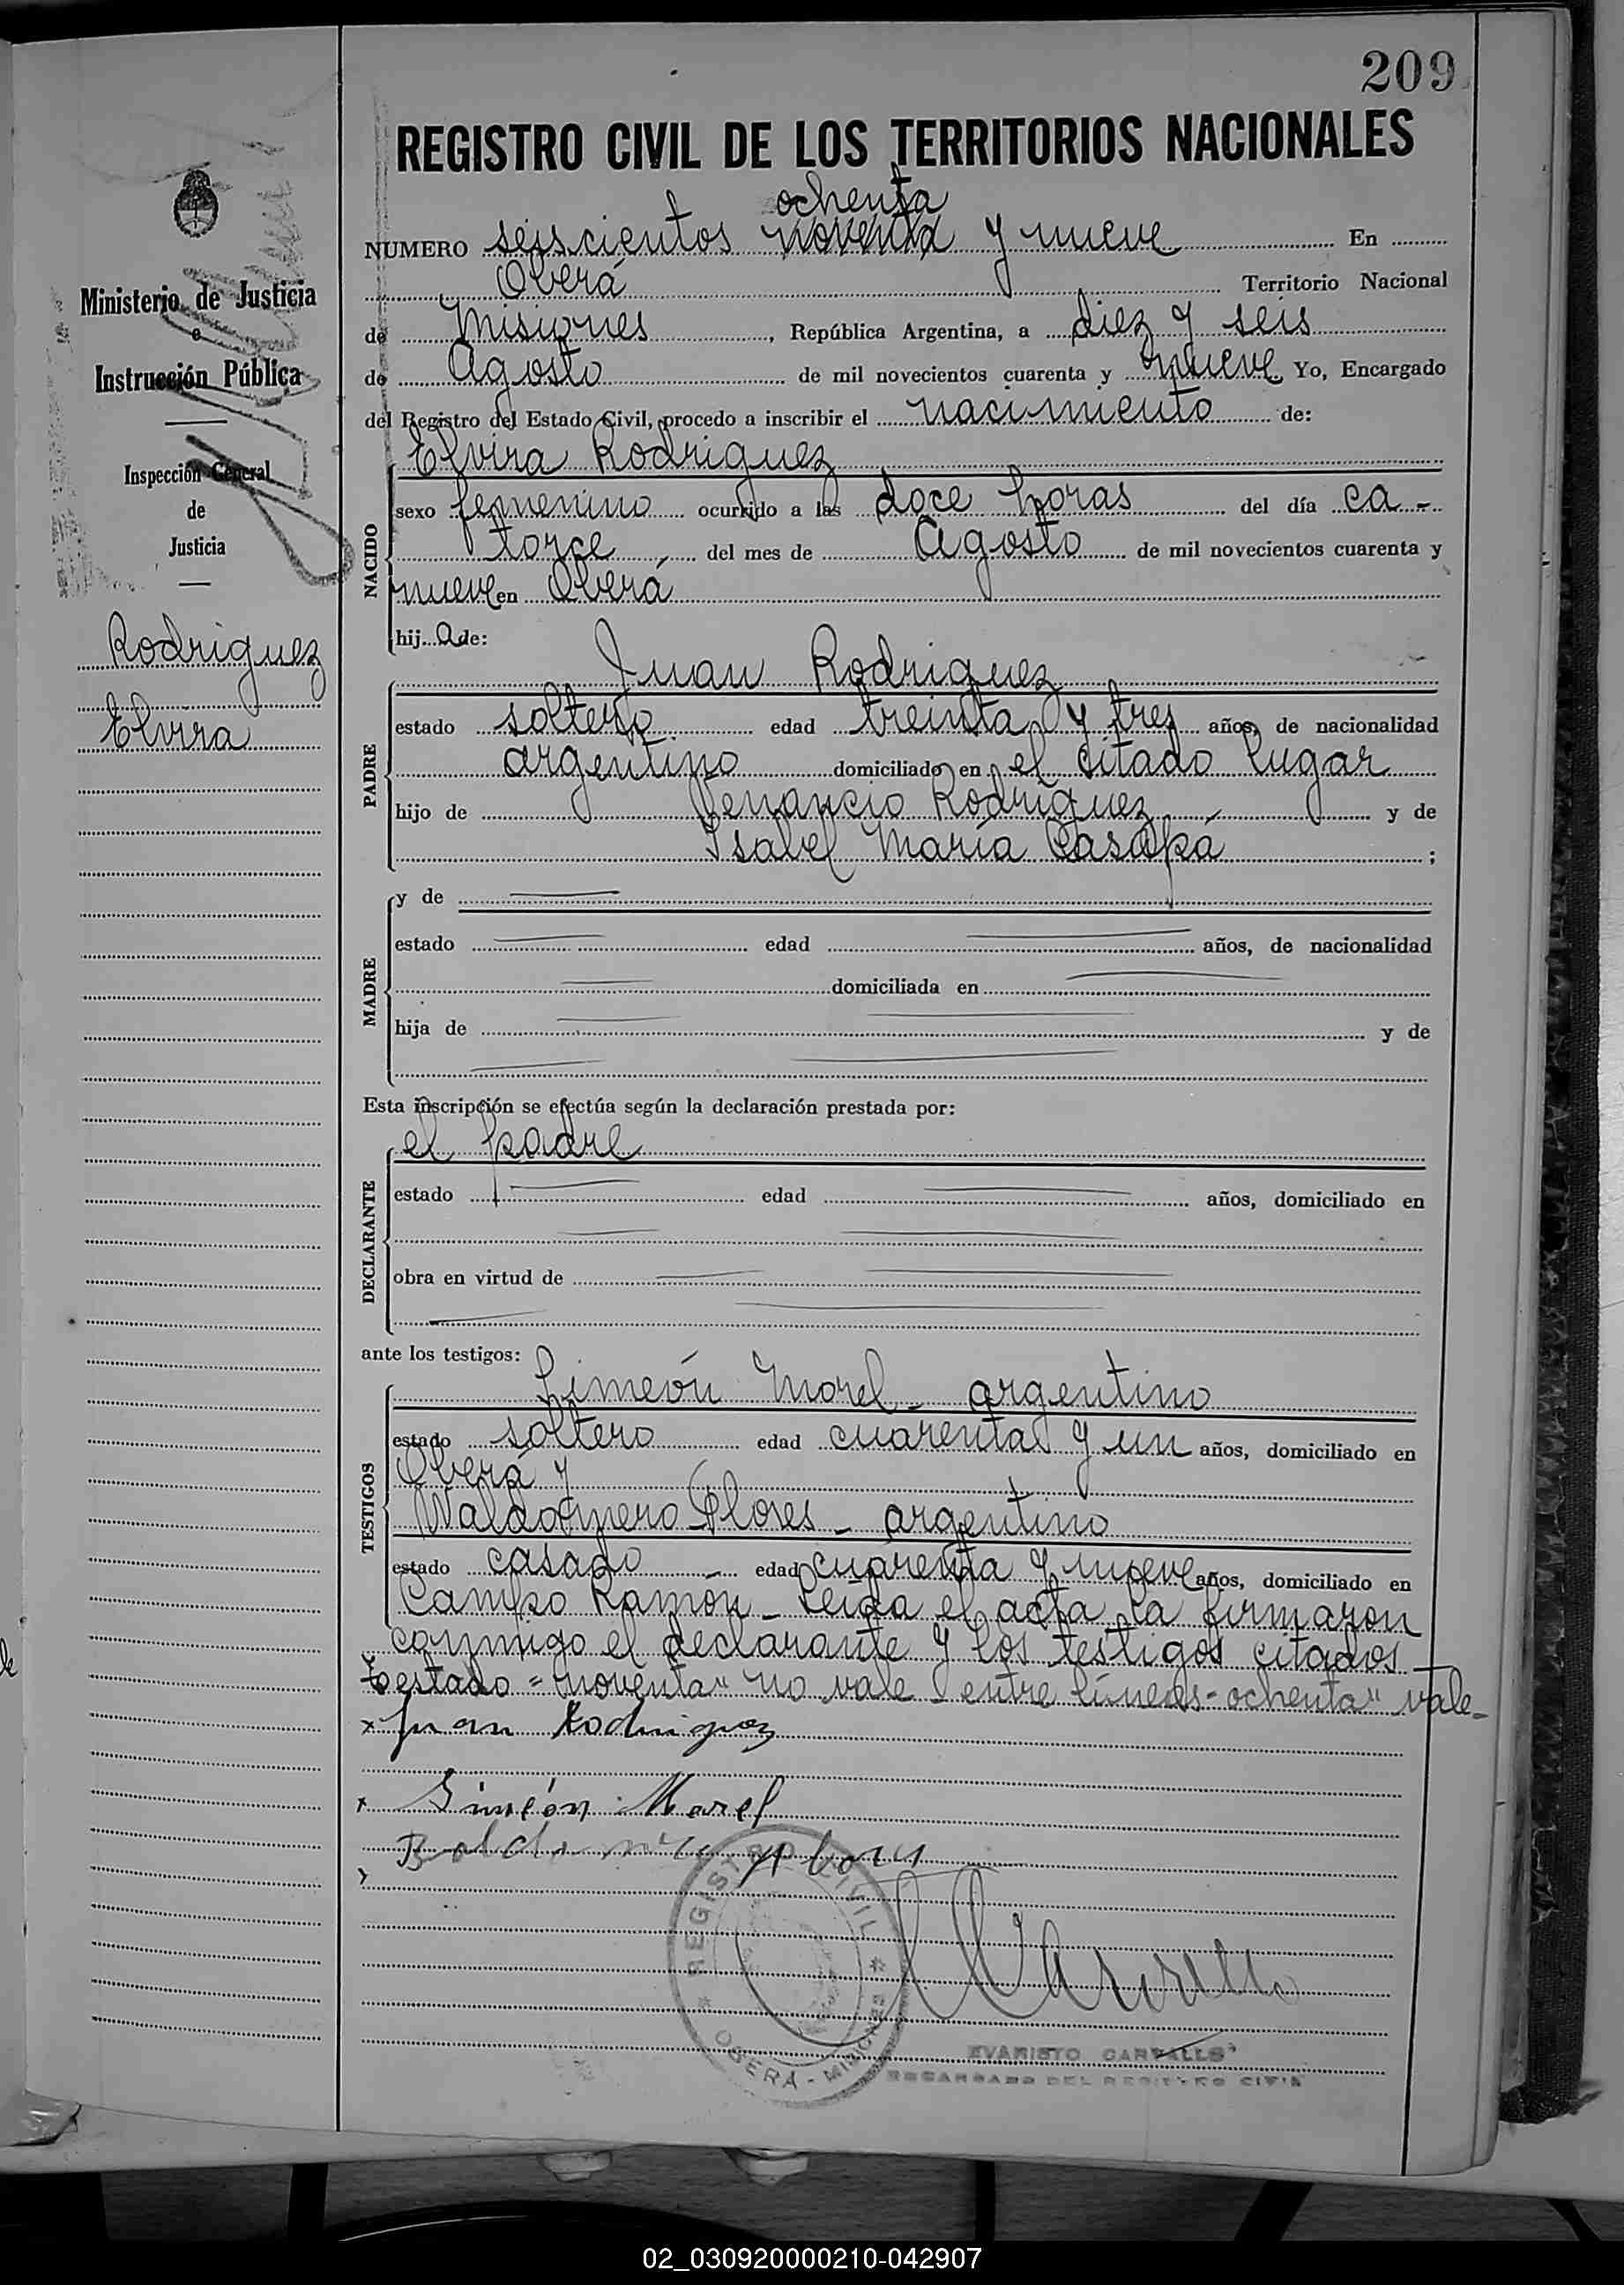 209
REGISTRO CIVIL DE LOS TERRITORIOS NACIONALES
ochenta
NUMERO seiscientos noventa y nueve En
Oberá Territorio Nacional
de Misiones, República Argentina, a diez y seis
de Agosto de mil novecientos cuarenta y nueve Yo, Encargado
del Registro del Estado Civil, procedo a inscribir el nacimiento de:
Ministerio de Justicia
e
Instrucción Pública
Inspección General
de
Justicia
Rodriguez
Elvira
NACIDO
Elvira Rodriguez
sexo femenino ocurrido a las doce horas del día ca-
torce del mes de Agosto de mil novecientos cuarenta y
nueve en Oberá
hija de:
PADRE
Juan Rodriguez
estado soltero edad treinta y tres años, de nacionalidad
argentino domiciliado en el citado lugar
hijo de Venancio Rodriguez y de
Isabel María Casapá ;
MADRE
y de
estado edad años, de nacionalidad
domiciliada en
hija de y de
Esta inscripción se efectúa según la declaración prestada por:
DECLARANTE
el padre
estado edad años, domiciliado en
obra en virtud de
ante los testigos:
TESTIGOS
Simeón Morel - argentino
estado soltero edad cuarenta y un años, domiciliado en
Oberá y
Waldomero Flores - argentino
estado casado edad cuarenta y nueve años, domiciliado en
Campo Ramón - Leída el acta, la firmaron
conmigo el declarante y los testigos citados -
Testado = "noventa" no vale entre líneas - ochenta" vale -
x Juan Rodriguez
x Simeón Morel
REGISTRO CIVIL
OBERÁ - MISIONES
EVARISTO CARVALLO
ENCARGADO DEL REGISTRO CIVIL
02_030920000210-042907